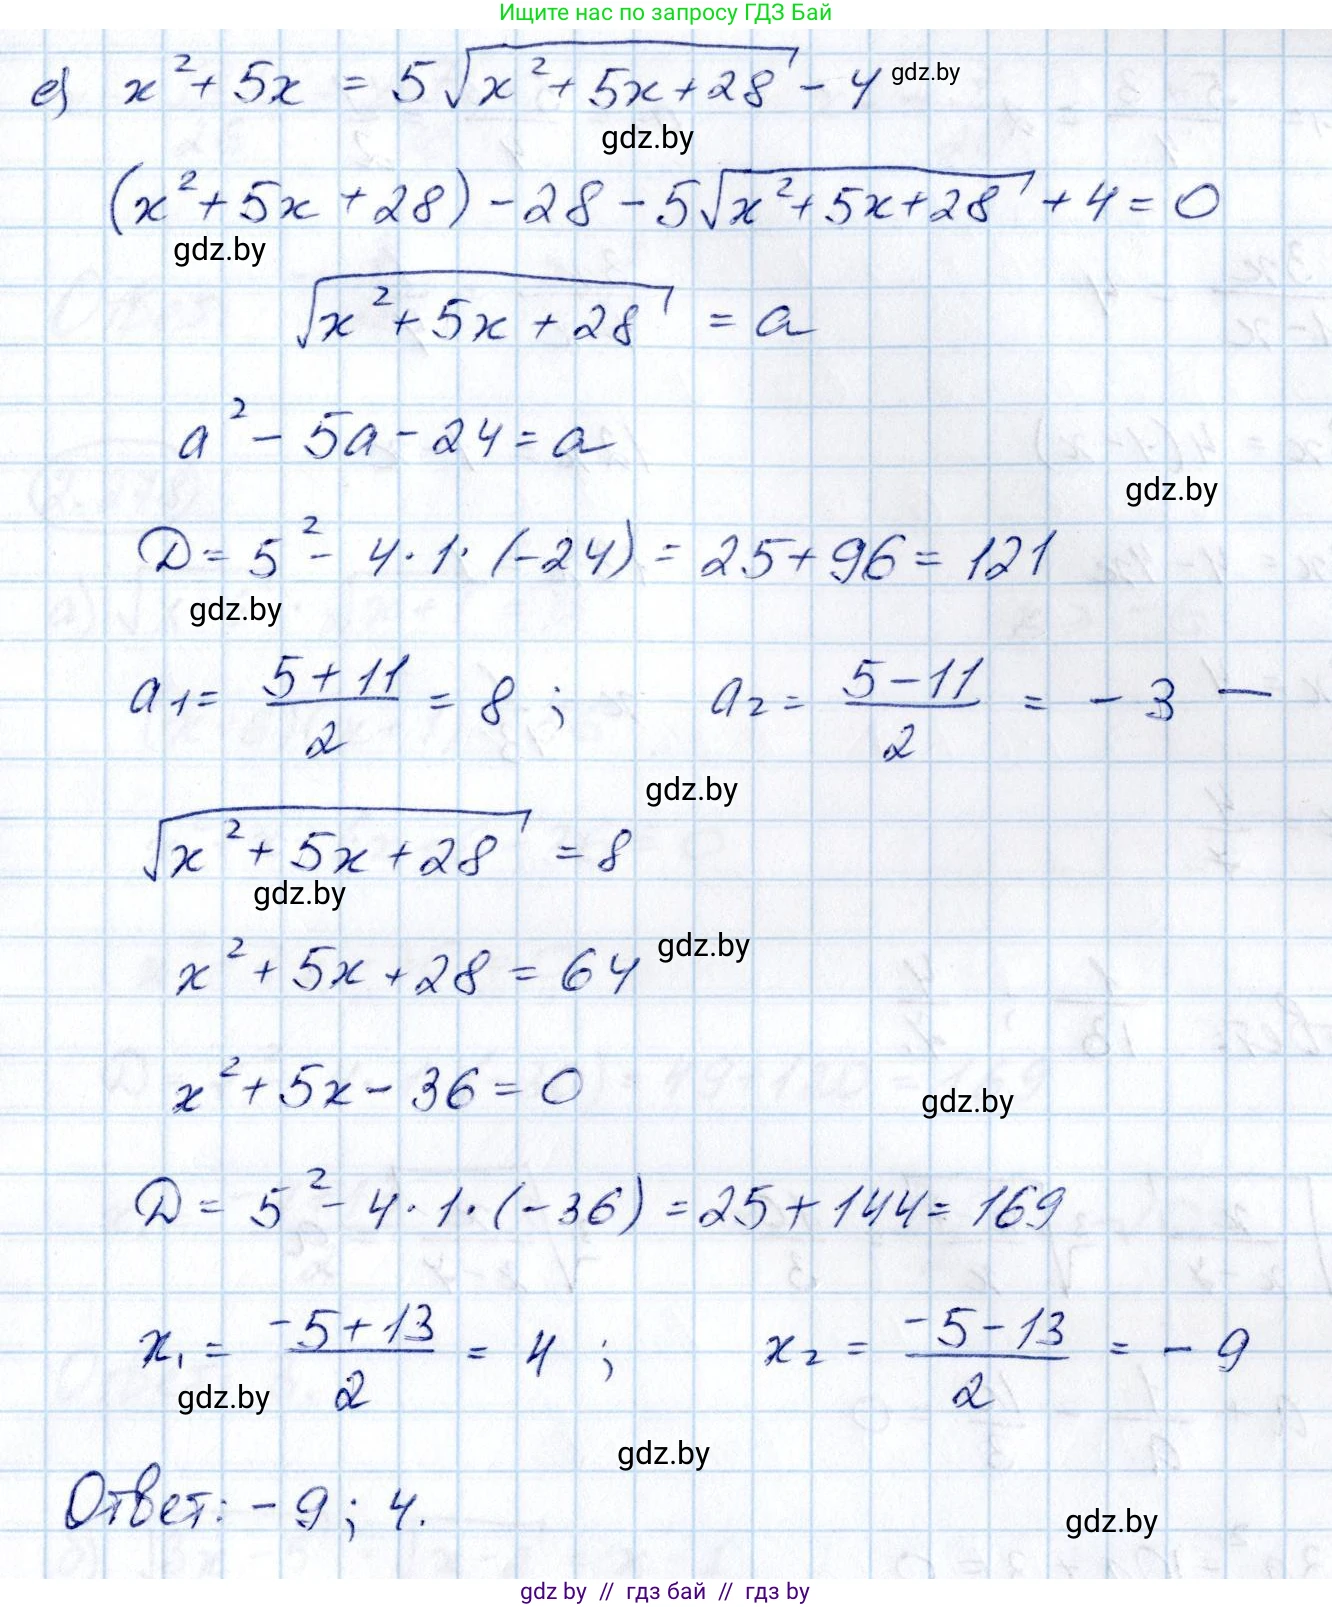 Ищите нас по запросу ГДЗ Бай
е) x² + 5x = 5√(x² + 5x + 28) - 4 gdz.by
gdz.by
(x² + 5x + 28) - 28 - 5√(x² + 5x + 28) + 4 = 0
gdz.by
√(x² + 5x + 28) = a
a² - 5a - 24 = a
gdz.by
D = 5² - 4 · 1 · (-24) = 25 + 96 = 121
gdz.by
a₁ = (5 + 11)/2 = 8 ; a₂ = (5 - 11)/2 = -3 —
gdz.by
√(x² + 5x + 28) = 8
gdz.by
gdz.by
x² + 5x + 28 = 64
x² + 5x - 36 = 0
gdz.by
D = 5² - 4 · 1 · (-36) = 25 + 144 = 169
x₁ = (-5 + 13)/2 = 4 ; x₂ = (-5 - 13)/2 = -9
gdz.by
gdz.by
Ответ: -9; 4.
gdz.by
gdz by // гдз бай // гдз by